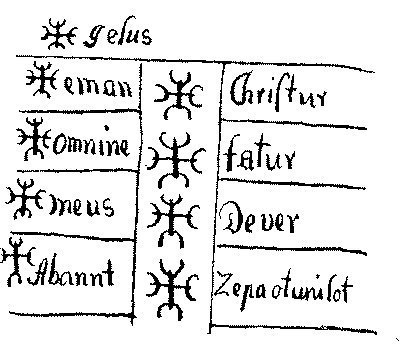 gesus
eman Christur
omnine fatur
meus Dever
Abannt Zepaotunisot